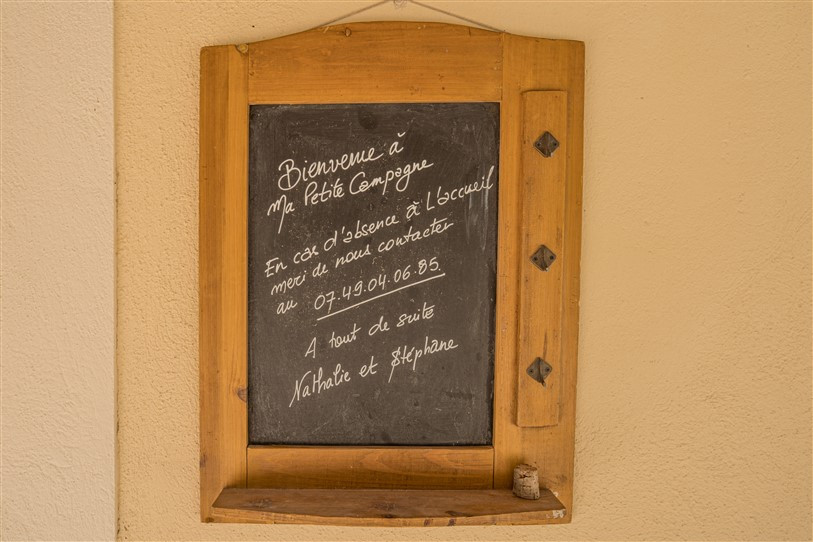 Bienvenue à
Ma Petite Campagne
En cas d'absence à L'accueil
merci de nous contacter
au 07.49.04.06.85.
A tout de suite
Nathalie et Stéphane